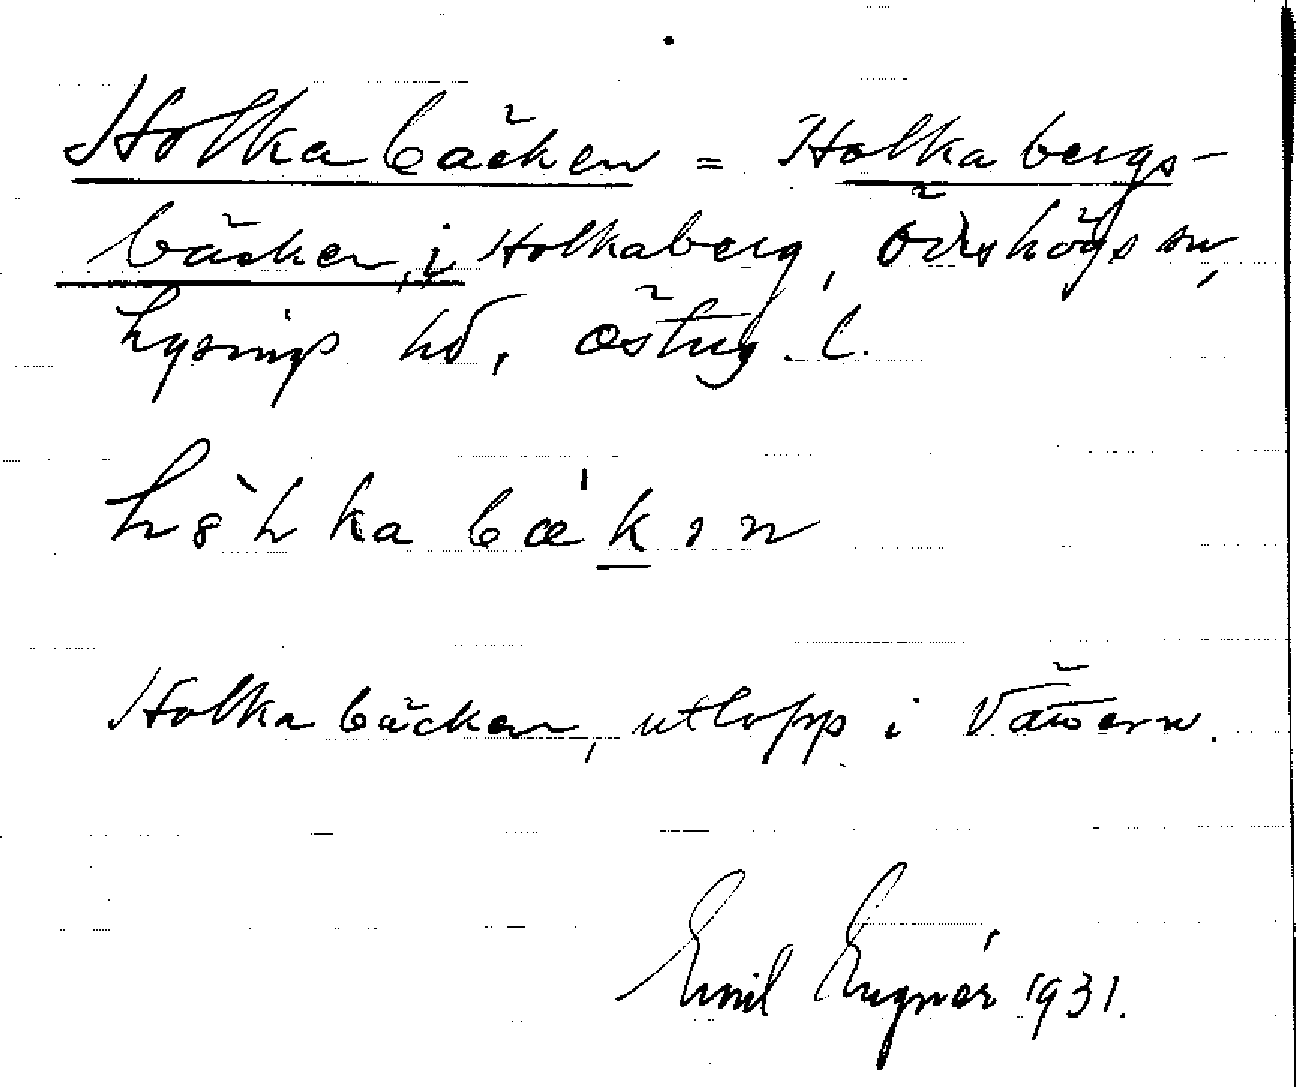 Holkabäcken = Holkabergs-
bäcken, i Holkaberg, Ödeshögs sn,
Lysings hd, Östug. l.
hòlkabækın
Holkabäcken, utlopp i Vättern.
Emil Engnér 1931.